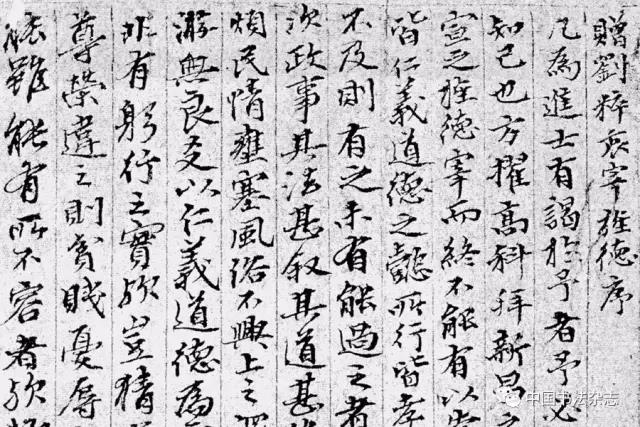 贈劉粹衷宰旌德序
凡為進士有謁於予者予必
知己也方擢高科拜新昌
宣之旌德宰而終不能有以
皆仁義道德之懿所行皆孝
不及則有之未有能過之者
次政事其法甚叙其道甚
煩民情壅塞風俗不興上之
游與良友以仁義道德為
非有躬行之實歟豈猜
尊榮違之則貧賤憂辱
雖能有所不容者歟
中国书法杂志